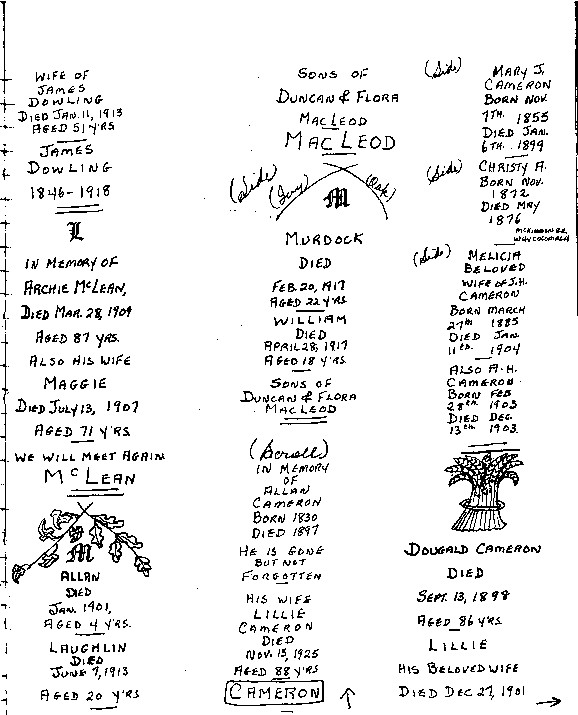 WIFE OF
JAMES
DOWLING
DIED JAN. 11, 1913
AGED 51 YRS
JAMES
DOWLING
1846-1918
L
IN MEMORY OF
ARCHIE McLEAN,
DIED MAR. 28, 1909
AGED 87 YRS.
ALSO HIS WIFE
MAGGIE
DIED JULY 13, 1907
AGED 71 YRS.
WE WILL MEET AGAIN
McLEAN
M
ALLAN
DIED
JAN. 1901,
AGED 4 YRS.
LAUGHLIN
DIED
JUNE 7, 1913
AGED 20 YRS
SONS OF
DUNCAN & FLORA
MACLEOD
MACLEOD
(Side) (Ivy) (Oak)
M
MURDOCK
DIED
FEB. 20, 1917
AGED 22 YRS.
WILLIAM
DIED
APRIL 28, 1917
AGED 18 YRS.
SONS OF
DUNCAN & FLORA
MACLEOD
(Scroll)
IN MEMORY
OF
ALLAN
CAMERON
BORN 1830
DIED 1897
HE IS GONE
BUT NOT
FORGOTTEN
HIS WIFE
LILLIE
CAMERON
DIED
NOV. 15, 1925
AGED 88 YRS
CAMERON
(Side) MARY J.
CAMERON
BORN NOV.
7TH. 1855
DIED JAN.
6TH. 1899
(Side) CHRISTY A.
BORN NOV.
1872
DIED MAY
1876
(Side) MELICIA
BELOVED
WIFE OF J.H.
CAMERON
BORN MARCH
27th 1885
DIED JAN.
11th. 1904
ALSO A.H.
CAMERON
BORN FEB
28th. 1903
DIED DEC.
13th. 1903.
DOUGALD CAMERON
DIED
SEPT. 13, 1898
AGED 86 YRS.
LILLIE
HIS BELOVED WIFE
DIED DEC 27, 1901